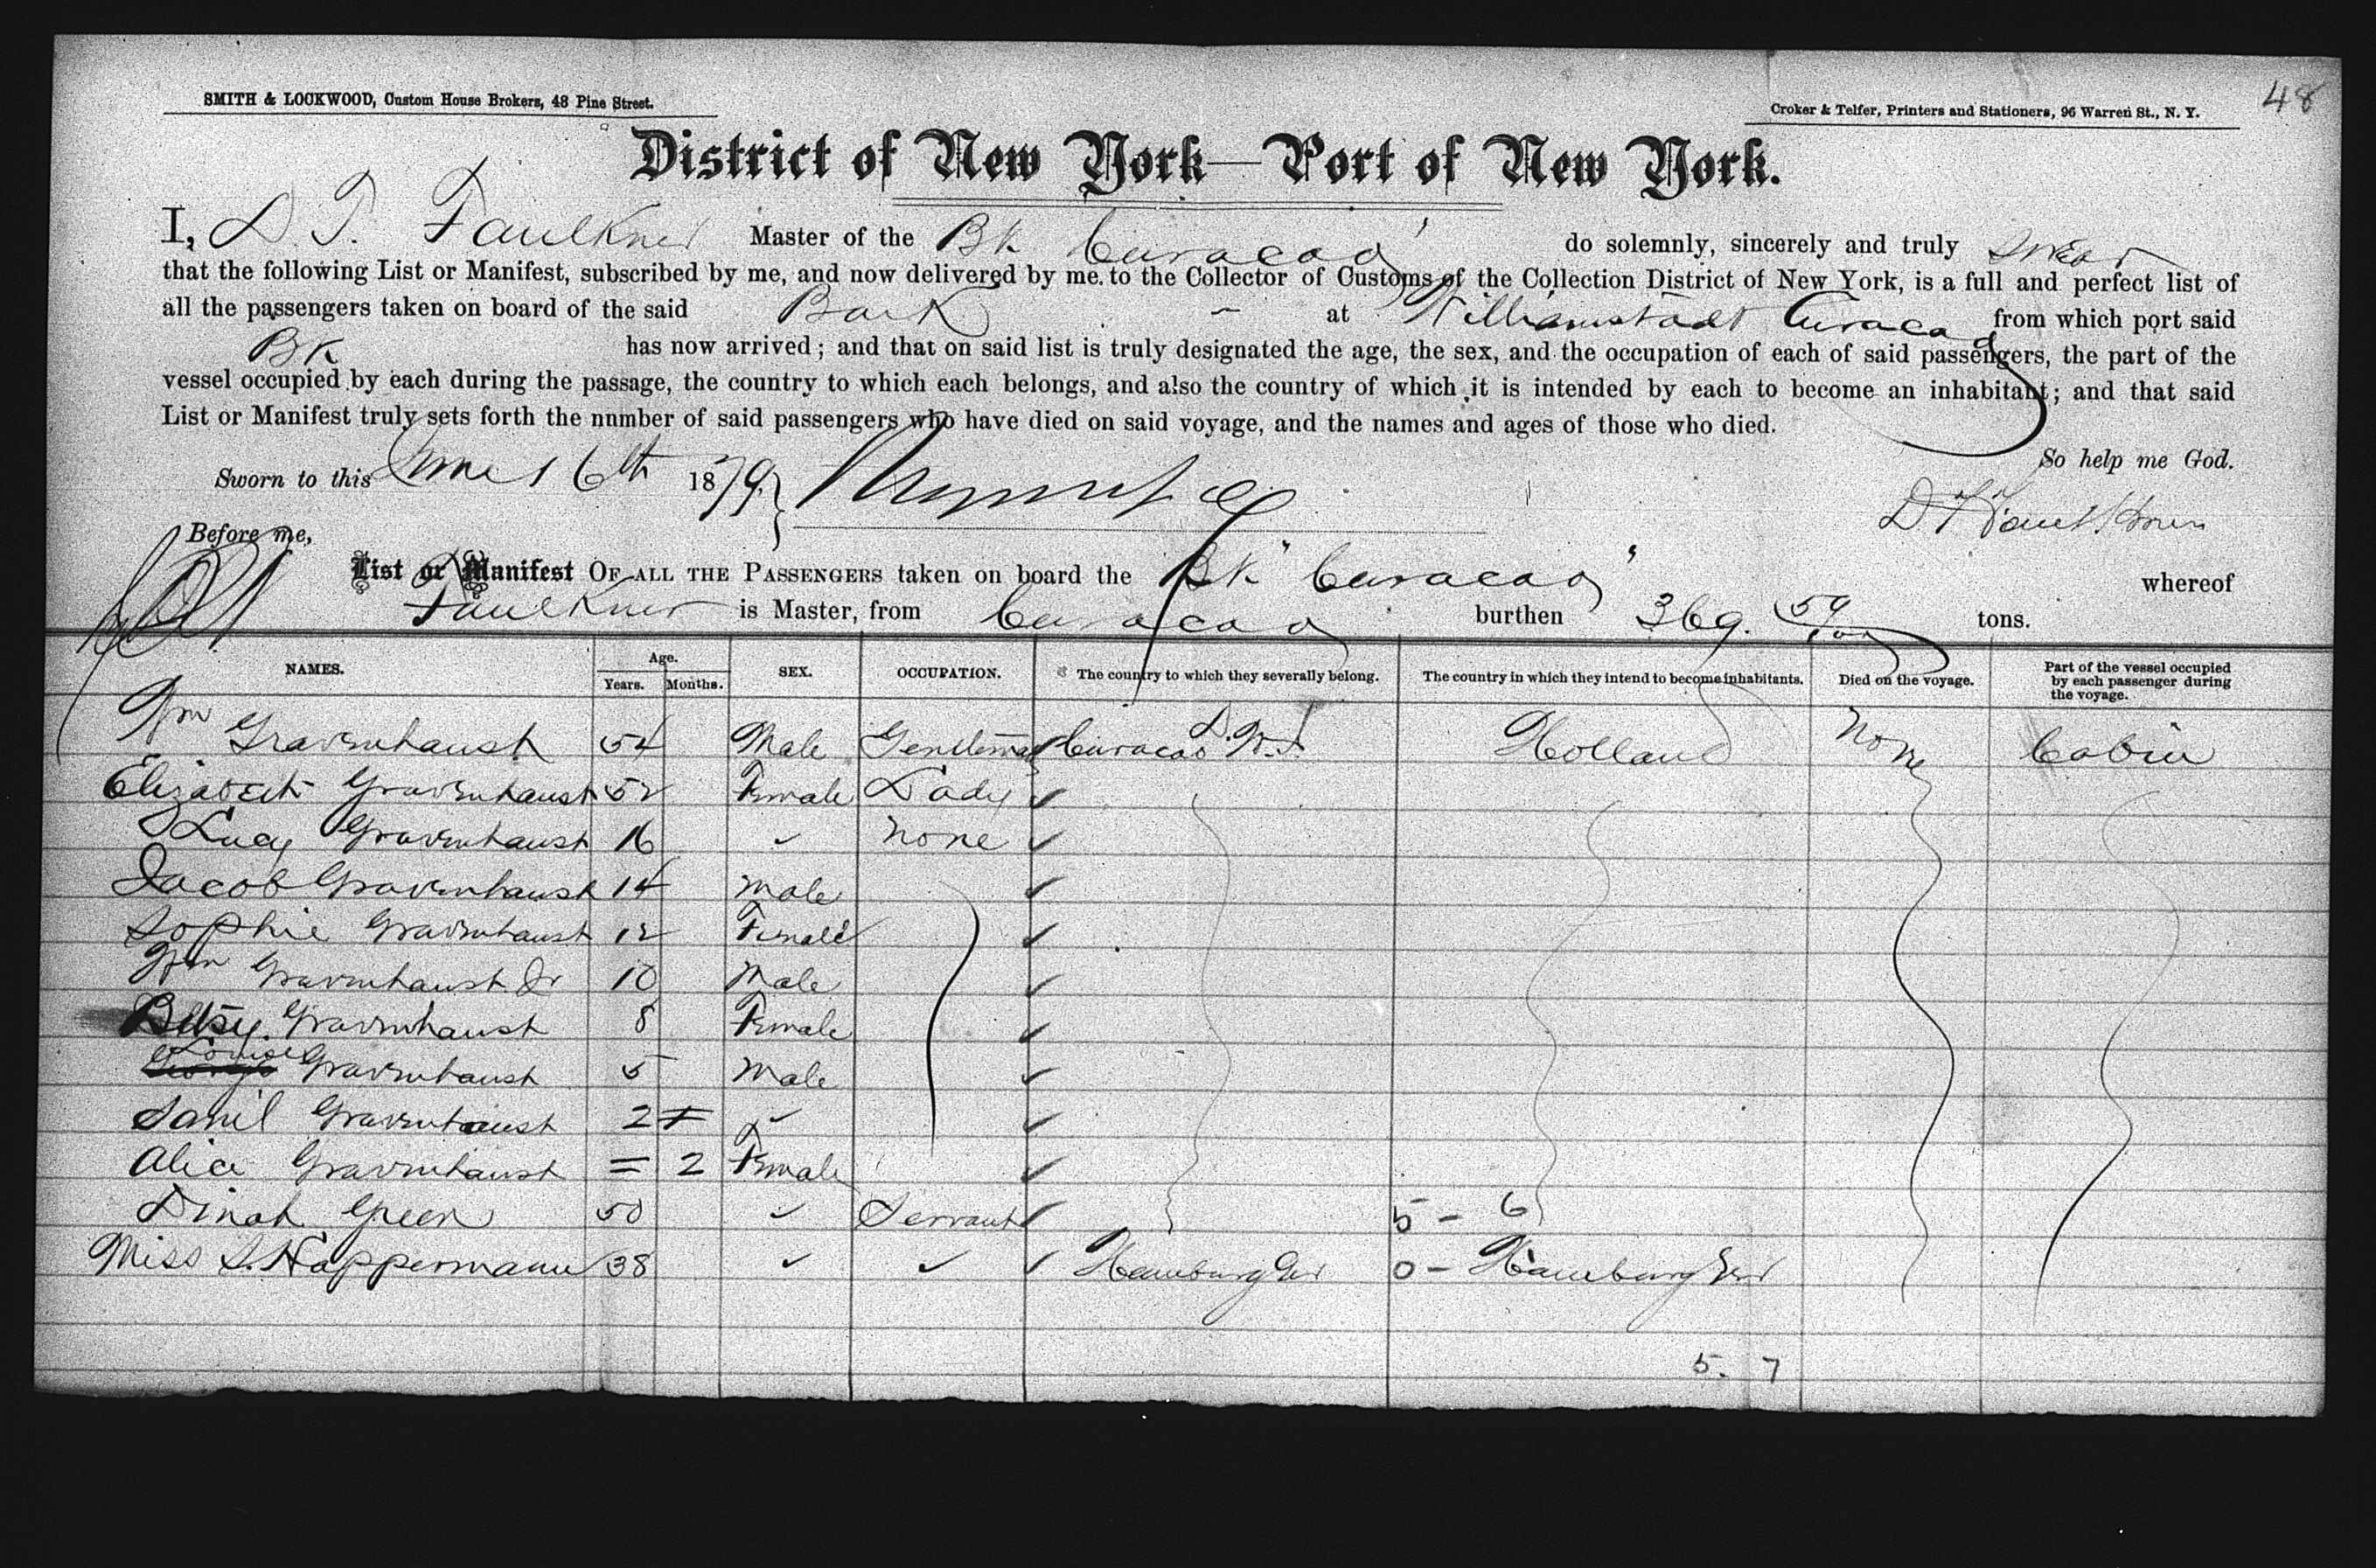 48
SMITH & LOCKWOOD, Custom House Brokers, 48 Pine Street.
Croker & Telfer, Printers and Stationers, 96 Warren St., N. Y.
District of New York—Port of New York.
I, D. T. Faulkner Master of the Bk Curacao do solemnly, sincerely and truly swear
that the following List or Manifest, subscribed by me, and now delivered by me to the Collector of Customs of the Collection District of New York, is a full and perfect list of
all the passengers taken on board of the said Bark at Williamstadt Curacao from which port said
Bk has now arrived; and that on said list is truly designated the age, the sex, and the occupation of each of said passengers, the part of the
vessel occupied by each during the passage, the country to which each belongs, and also the country of which it is intended by each to become an inhabitant; and that said
List or Manifest truly sets forth the number of said passengers who have died on said voyage, and the names and ages of those who died.
So help me God.
Sworn to this June 16th 1879
D T Faulkner
Before me,
List or Manifest OF ALL THE PASSENGERS taken on board the Bk "Curacao" whereof
Faulkner is Master, from Curacao burthen 369. 59/100 tons.
NAMES. Age. Years. Months. SEX. OCCUPATION. The country to which they severally belong. The country in which they intend to become inhabitants. Died on the voyage. Part of the vessel occupied by each passenger during the voyage.
Wm Gravenhaust 54 Male Gentleman Curacao D. W. I. Holland None Cabin
Elizabeth Gravenhaust 52 Female Lady ✓
Lucy Gravenhaust 16 ✓ None ✓
Jacob Gravenhaust 14 Male ✓
Sophie Gravenhaust 12 Female ✓
Wm Gravenhaust Jr 10 Male ✓
Betsy Gravenhaust 8 Female ✓
Louise Gravenhaust 5 Male ✓
Danil Gravenhaust 2 = ✓ ✓
Alice Gravenhaust = 2 Female ✓
Dinah Green 50 ✓ Servant ✓ 5 - 6
Miss S. Happermann 38 ✓ ✓ ✓ Hamburg Ger 0 - Hamburg Ger
5. 7